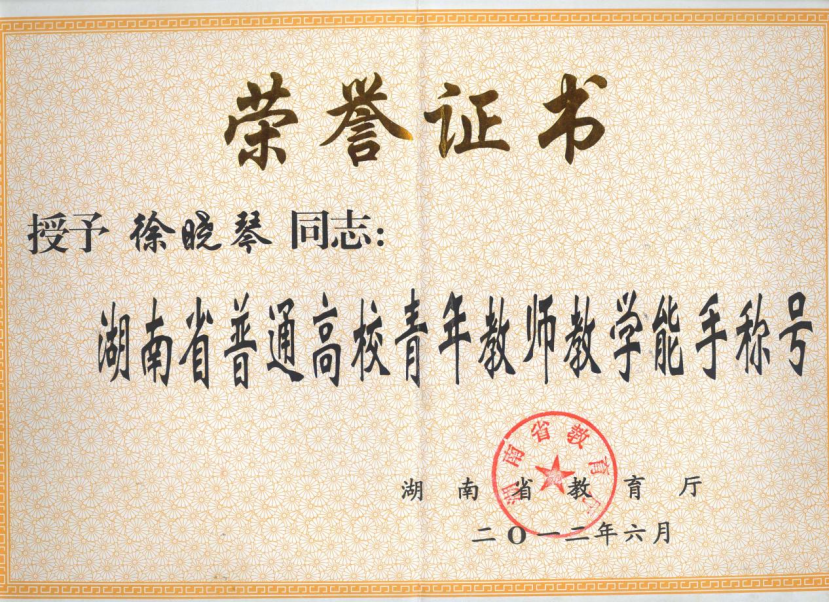 荣誉证书
授予 徐晓琴 同志：
湖南省普通高校青年教师教学能手称号
湖南省教育厅
湖南省教育厅
二〇一二年六月